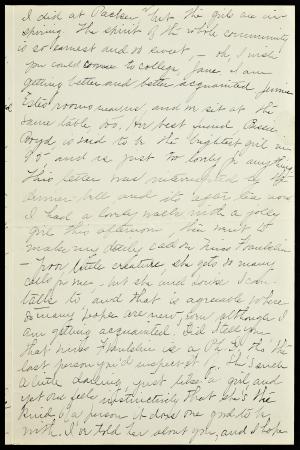 I did at Packer, but the girls are in-
spiring the spirit of the whole community
is so earnest and so sweet, - oh, I wish
you could come to college, Jane. I am
getting better and better acquainted. Jennie
rooms near us, and we sit at the
same table, too. Her best friend
Boyd is said to be the brightest girl in
95 - and is just too lovely for anything.
This letter was interrupted by the
dinner-bell and its after tea now.
I had a lovely walk with a jolly
girl this afternoon, then went to
make my daily call on Miss Franklin
- poor little creature, she gets so many
calls from me, but she and Louise I can
talk to, and that is agreeable where
so many people are new, even although I
am getting acquainted. Did I tell you
that Miss Franklin is a Ph. D. tho' the
last person you'd suspect of it. She's such
a little darling, just like a girl, and
yet one feels instinctively that she's the
kind of a person it does one good to be
with. I've told her about you, and I hope